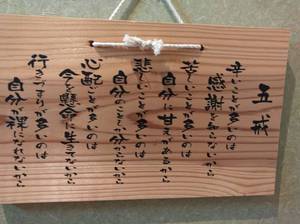 五戒
辛いことが多いのは
感謝を知らないから
苦しいことが多いのは
自分に甘すぎるから
悲しいことが多いのは
自分のことしか分らないから
心配ことが多いのは
今を懸命に生きてないから
行きづまりが多いのは
自分が裸になれないから